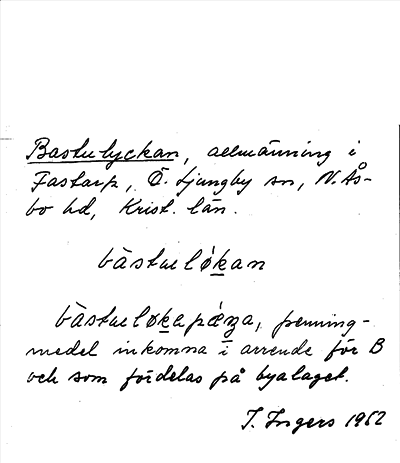 Bastulyckan, allmänning i
Fastarp, Ö. Ljungby sn, N. Ås-
bo hd, Krist. län.
bàstuløkan
bàstuløkapæŋa, penning-
medel inkomna i arrende för B
och som fördelas på byalaget.
I. Ingers 1962